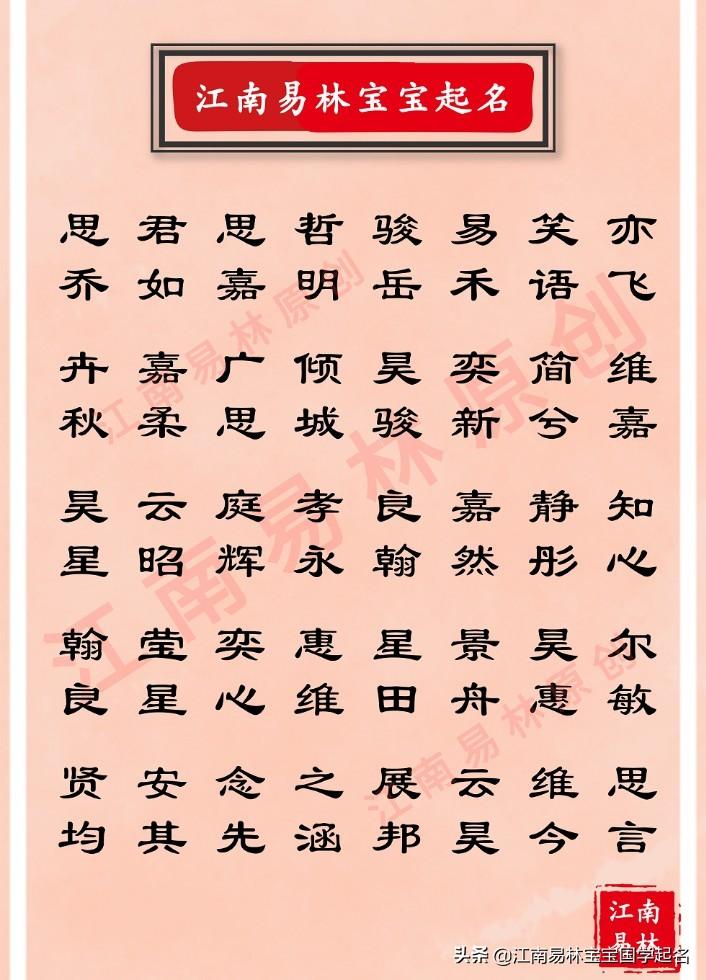 江南易林宝宝起名
思 君 思 哲 骏 易 笑 亦
乔 如 嘉 明 岳 禾 语 飞
卉 嘉 广 倾 昊 奕 简 维
秋 柔 思 城 骏 新 兮 嘉
昊 云 庭 孝 良 嘉 静 知
星 昭 辉 永 翰 然 彤 心
翰 莹 奕 惠 星 景 昊 尔
良 星 心 维 田 舟 惠 敏
贤 安 念 之 展 云 维 思
均 其 先 涵 邦 昊 今 言
江南易林原创
江南易林原创
江南易林原创
江南
易林
头条 @江南易林宝宝国学起名